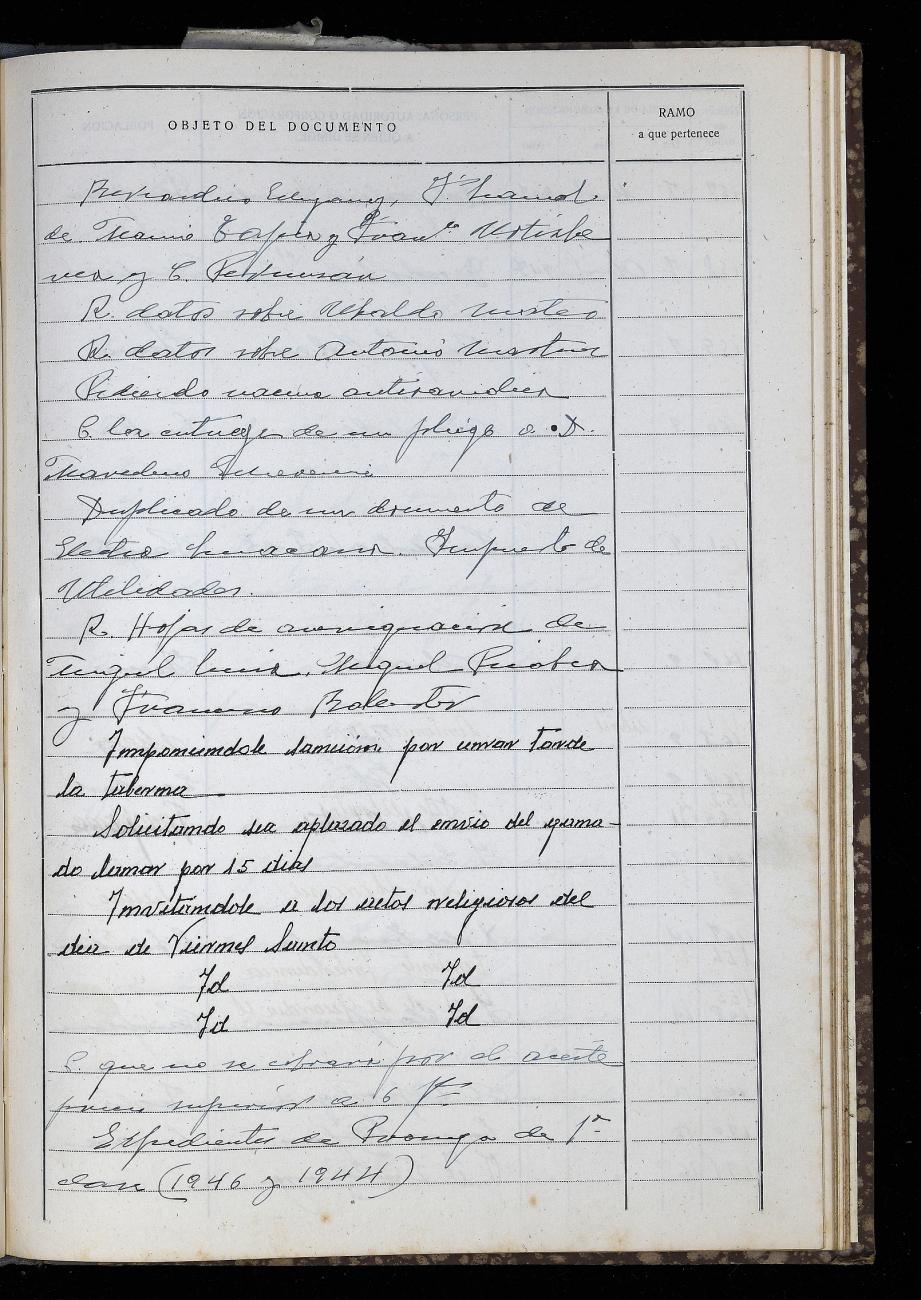 OBJETO DEL DOCUMENTO
RAMO
a que pertenece
Bernardino
de y
ves y C.
R. datos sobre
R. datos sobre Antonio Martinez
Pidiendo vacuna antirrabica
C. la entrega de un pliego a D.
Marcelino Echeverria
Duplicado de un documento de
Electra . Impuesto de
Utilidades.
R. Hojas de averiguacion de
Miguel , Miguel
y Francisco
Imponiendole sanción por cerrar tarde
la taberna
Solicitando sea aplazado el envio del gana-
do lanar por 15 dias
Invitandole a los actos religiosos del
dia de Viernes Santo
Id Id
Id Id
C. que no se cobrará por el aceite
precio superior de 6
Expedientes de Prorroga de 1ª
clase (1946 y 1944)